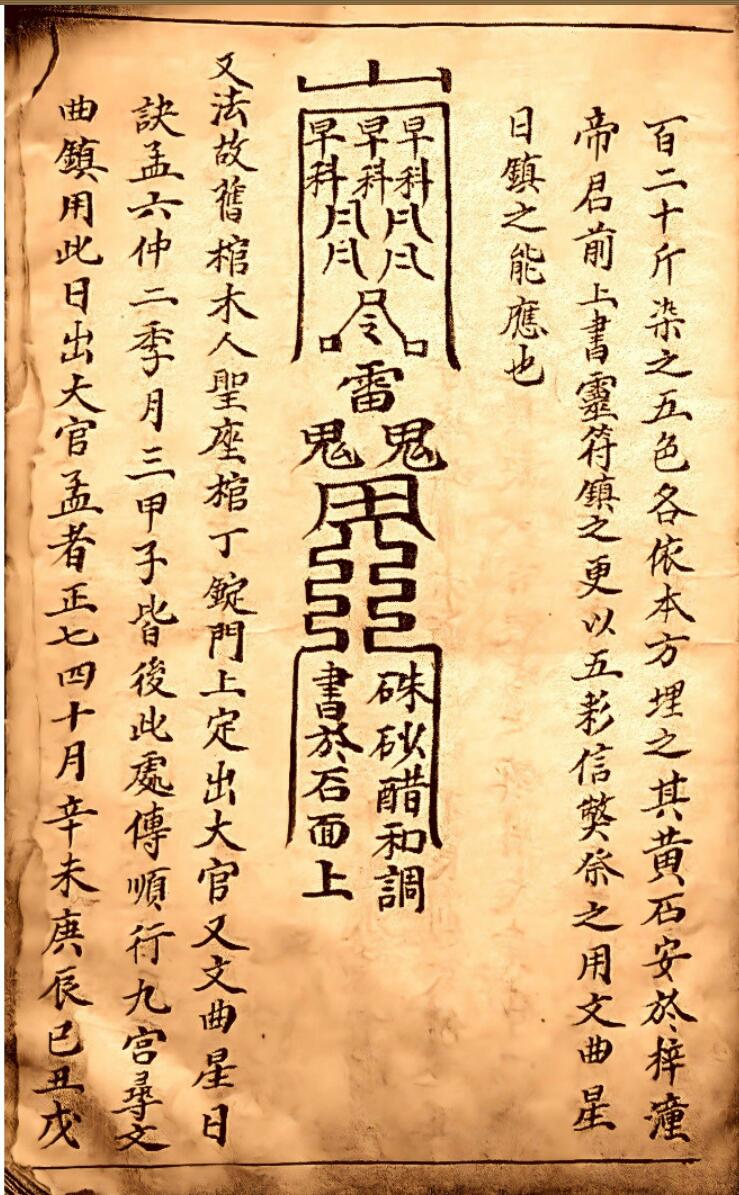 百二十斤染之五色各依本方埋之其黃石安於梓潼
帝君前上書靈符鎮之更以五彩信獘祭之用文曲星
日鎮之能應也
早早早
科科科
尸
令
口口
雷
鬼鬼
硃砂醋和調
書於石面上
又法故舊棺木人聖座棺丁錠門上定出大官又文曲星日
訣孟六仲二季月三甲子皆後此處傳順行九宮尋文
曲鎮用此日出大官孟者正七四十月辛未庚辰巳丑戊